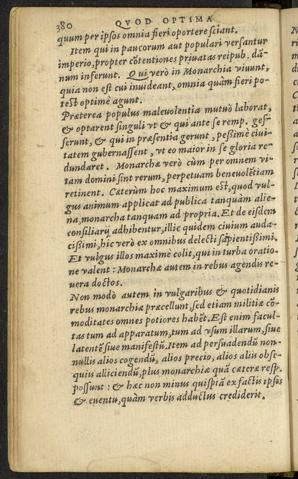 380 QVOD OPTIMA
quum per ipsos omnia fieri oportere sciant.
Item qui in paucorum aut populari versantur
imperio, propter cōtentiones priuatas reipub. dā-
num inferunt. Qui verò in Monarchia viuunt,
quia non est cui inuideant, omnia quàm fieri po-
test optimè agunt.
Præterea populus maleuolentia mutuò laborat,
& optarent singuli vt & qui ante se remp. ges-
serunt, & qui in præsentia gerunt, pessimè ciui-
tatem gubernassent, vt eo maior in se gloria re-
dundaret. Monarchæ verò cùm per omnem vi-
tam domini sint rerum, perpetuam beneuolētiam
retinent. Cæterùm hoc maximum est, quod vul-
gus animum applicat ad publica tanquàm alie-
na, monarcha tanquam ad propria. Et de eisdem
consiliarij adhibentur, illic quidem ciuium auda-
cissimi, hic verò ex omnibus delecti sapientissimi.
Et vulgus illos maximè colit, qui in turba oratio-
ne valent: Monarchæ autem in rebus agendis re-
uera doctos.
Non modò autem in vulgaribus & quotidianis
rebus monarchiæ præcellunt, sed etiam militiæ cō-
moditates omnes potiores habēt. Est enim facul-
tas tum ad apparatum, tum ad vsum illarum, siue
latentē siue manifestū. Item ad persuadendū non-
nullis alios cogendū, alios precio, alios alijs obse-
quijs alliciendū, plus monarchiæ quā cæteræ resp.
possunt: & hæc non minus quispiā ex factis ipsis
& euentu, quàm verbis adductus crediderit.